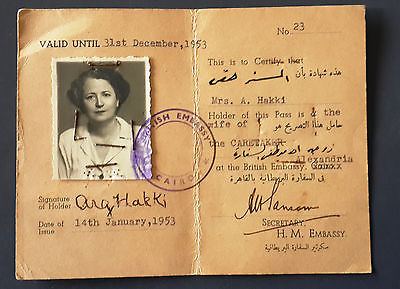 VALID UNTIL 31st December, 1953
BRITISH EMBASSY
CAIRO
Signature of Holder
Arg Hakki
Date of Issue 14th January, 1953
No. 23
This is to Certify that
هذه شهادة بأن
Mrs. A. Hakki
Holder of this Pass is & the
wife of
حامل هذا التصريح هو
the CARETAKER
Alexandria
at the British Embassy, Cairo
فى السفارة البريطانية بالقاهرة
SECRETARY,
H. M. EMBASSY.
سكرتير السفارة البريطانية